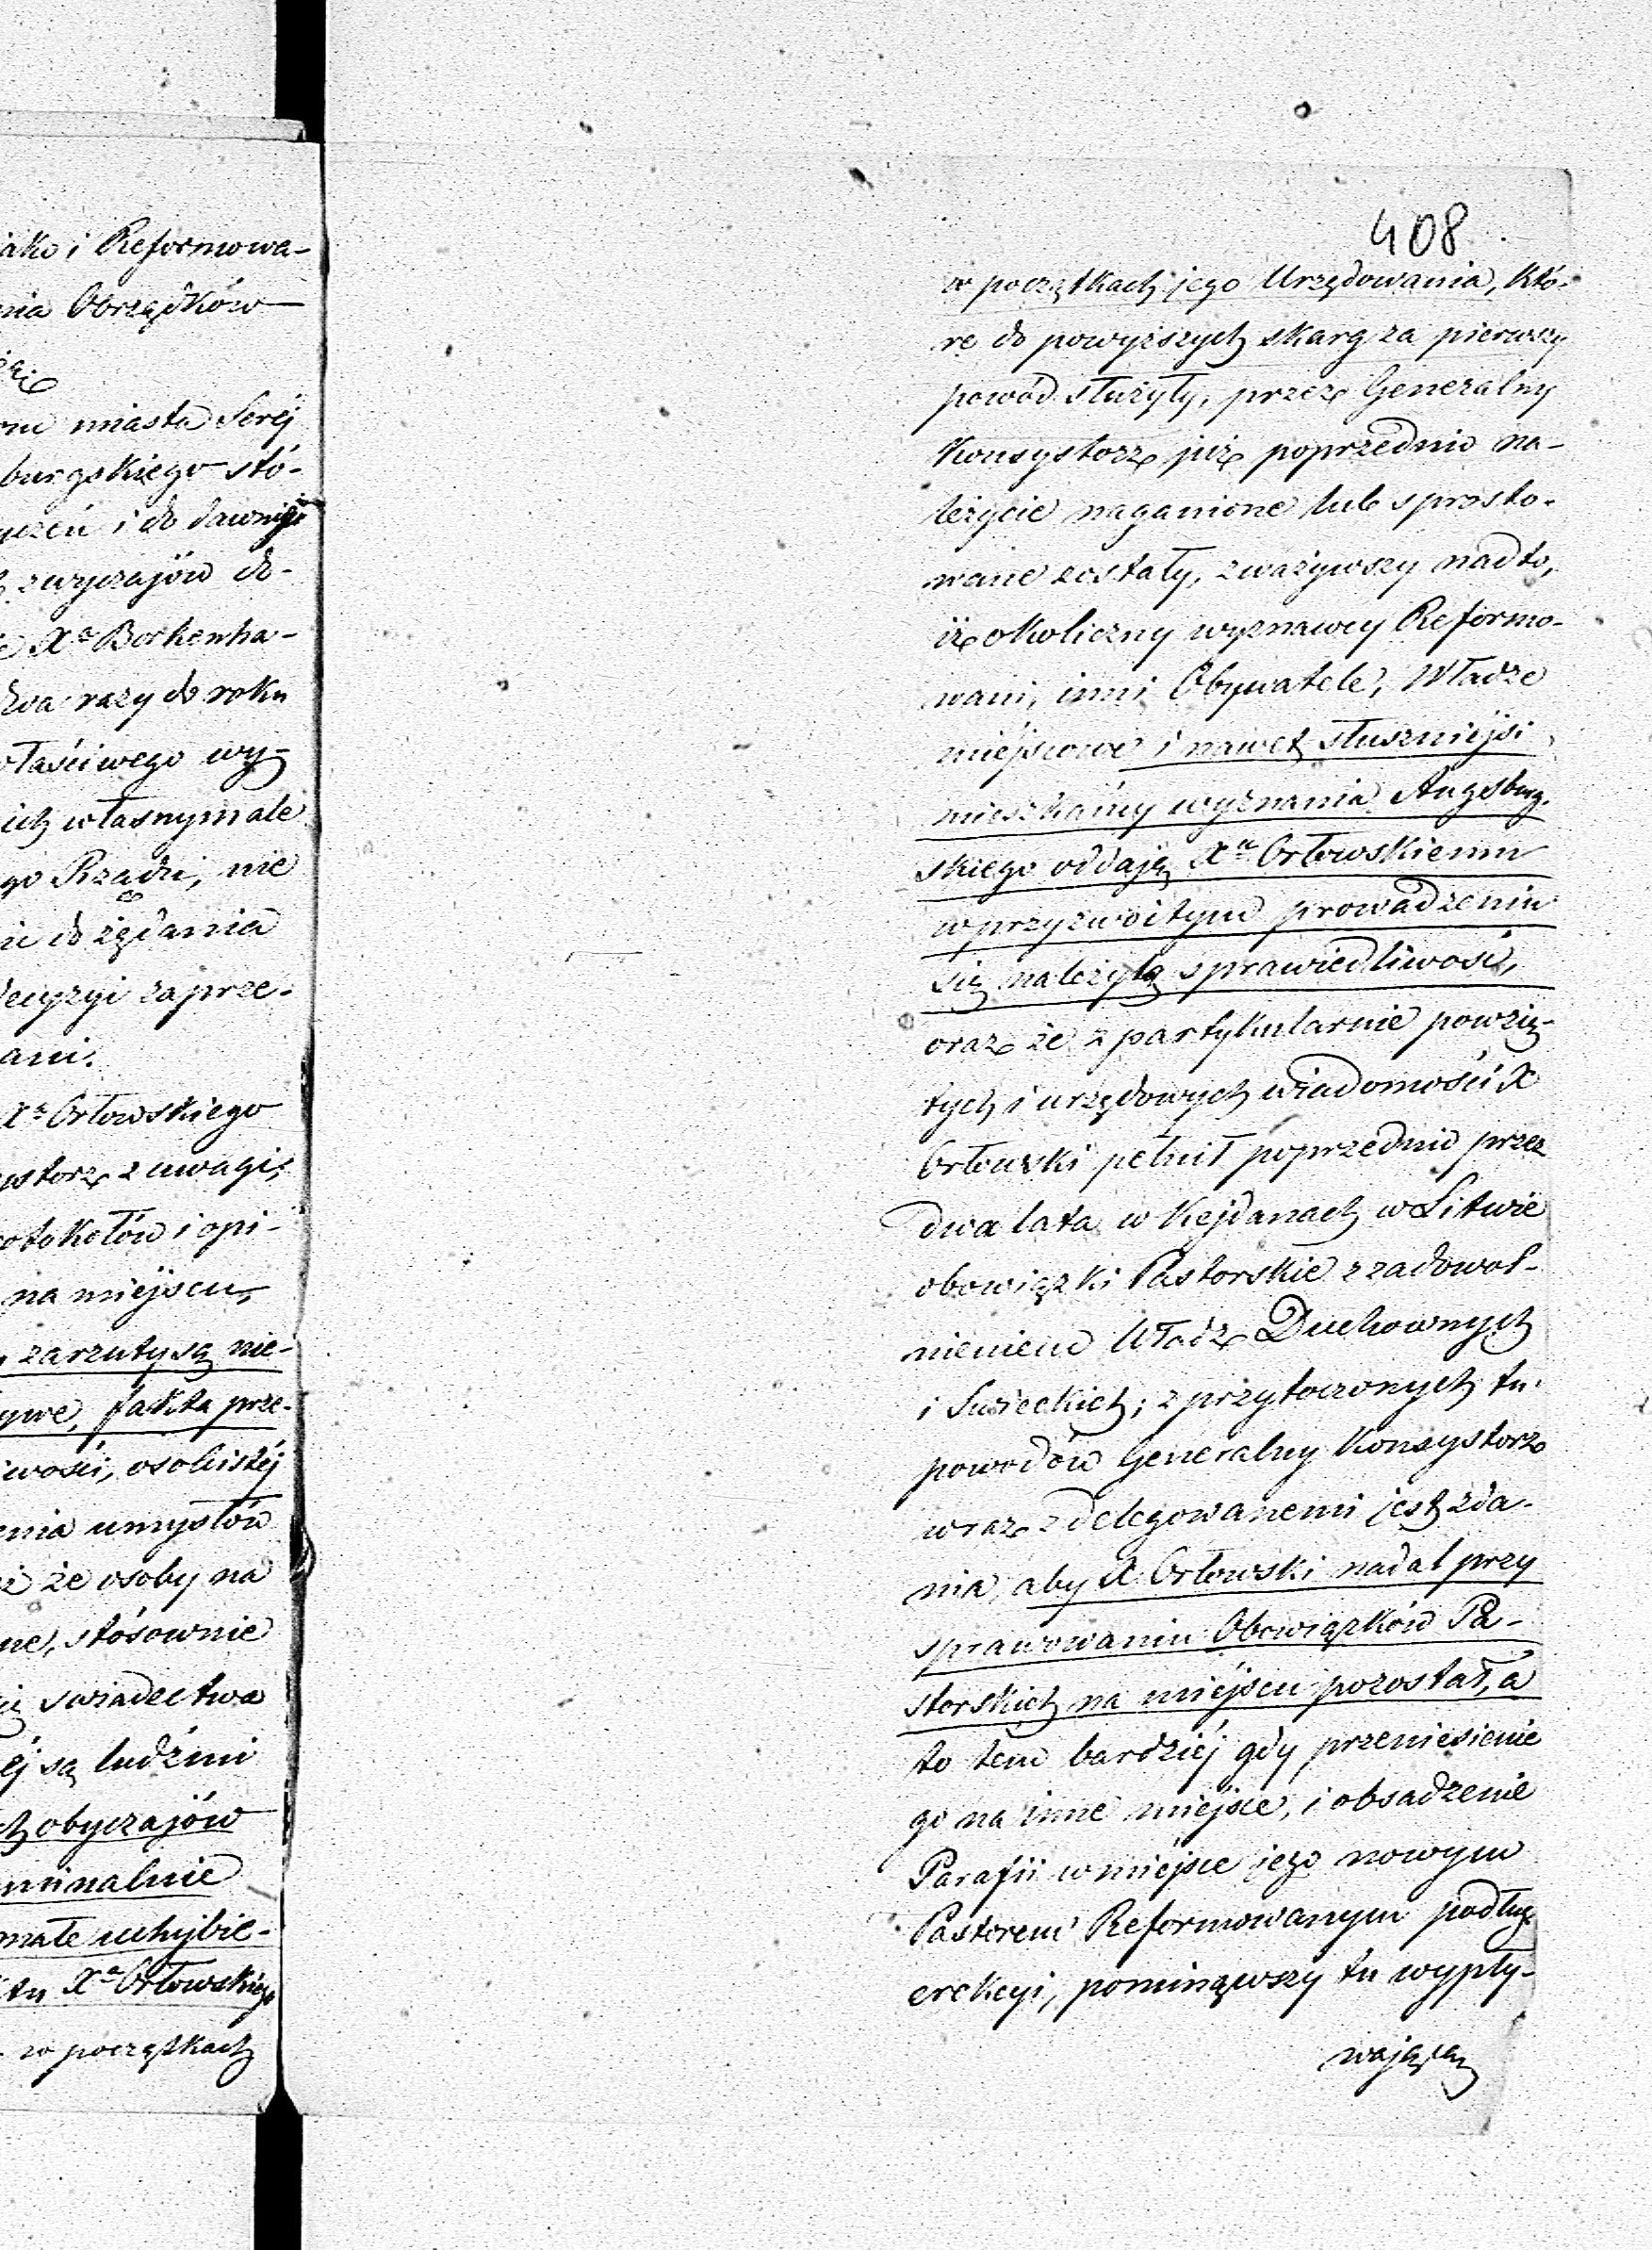 jako i Reformowa-
nia Obrządków
miasta Serej
burgskiego stó-
i do dawnego
zwyczajów do-
Xa Borkenha-
dwa razy do roku
właściwego wy-
ich własnym ale
go Rządzi, nie
do żądania
decyzyi zaprze-
ani.
Xa Orłowskiego
z uwagi,
i opi-
na miejscu,
zarzuty są nie-
fakta prze-
osobistéj
enia umysłów
że osoby na
stósownie
swiadectwa
są ludźmi
obyczajów
minalnie
małe uchybie-
tu Xa Orłowskiego
w początkach
408
w początkach jego Urzędowania, któ-
re do powyższych skarg za pierwszy
powód służyły, przez Generalny
Konsystorz już poprzednio na-
leżycie naganione lub sprosto-
wane zostały, zważywszy nadto,
iż okoliczny wyznawcy Reformo-
wani, inni Obywatele, Władze
miéjscowe i nawet słuszniejsi
mieszkańcy wyznania Augsburg-
skiego oddają Xu Orłowskiemu
w przyzwoitym prowadzeniu
się należytą sprawiedliwość,
oraz że z partykularnie powzię-
tych i urzędowych wiadomości X
Orłowski pełnił poprzednio przez
dwa lata w Kejdanach w Litwie
obowiązki Pastorskie z zadowol-
nieniem Władz Duchownych
i Swieckich; z przytoczonych tu
powodów Generalny Konsystorz
wraz z delegowanemi jest zda-
nia, aby X Orłowski nadal przy
sprawowaniu Obowiązków Pa-
storskich na miéjscu pozostał, a
to tem bardziéj gdy przeniesienie
go na inne miéjsce, i obsadzenie
Parafii w miéjsce jego nowym
Pastorem Reformowanym podług
erekcyi, pominąwszy tu wypły-
wającą